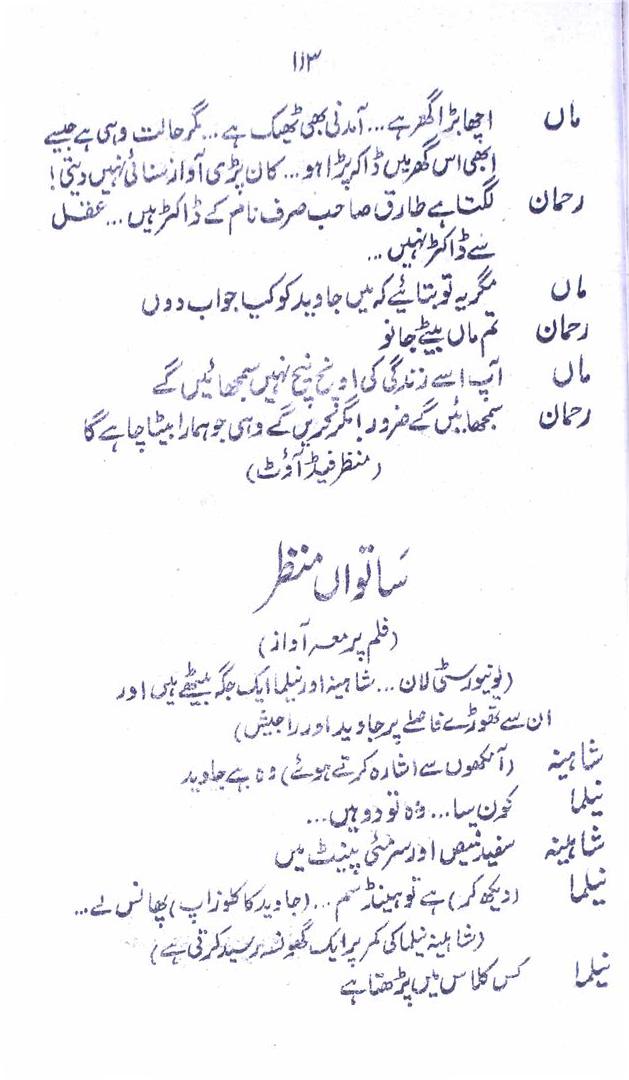 ۱۱۳
ماں اچھا بڑا گھر ہے... آمدنی بھی ٹھیک ہے... مگر حالت وہی ہے جیسے
ابھی اس گھر میں ڈاکہ پڑا ہو... کان پڑی آواز سنائی نہیں دیتی!
رحمان لگتا ہے طارق صاحب صرف نام کے ڈاکٹر ہیں... عقل
سے ڈاکٹر نہیں...
ماں مگر یہ تو بتائیے کہ میں جاوید کو کیا جواب دوں
رحمان تم ماں بیٹے جانو
ماں آپ اسے زندگی کی اونچ نیچ نہیں سمجھائیں گے
رحمان سمجھائیں گے ضرور! مگر کریں گے وہی جو ہمارا بیٹا چاہے گا
(منظر فیڈ آؤٹ)
ساتواں منظر
(فلم پر معہ آواز)
(یونیورسٹی لان... شاہینہ اور نیلما ایک جگہ بیٹھے ہیں اور
ان سے تھوڑے فاصلے پر جاوید اور راجیش)
شاہینہ (آنکھوں سے اشارہ کرتے ہوئے) وہ ہے جاوید
نیلما کون سا... وہ تو دو ہیں...
شاہینہ سفید قمیص اور سرمئی پینٹ میں
نیلما (دیکھ کر) ہے تو ہینڈسم... (جاوید کا کلوز اپ) پھانس لے...
(شاہینہ نیلما کی کمر پر ایک گھونسہ رسید کرتی ہے)
نیلما کس کلاس میں پڑھتا ہے